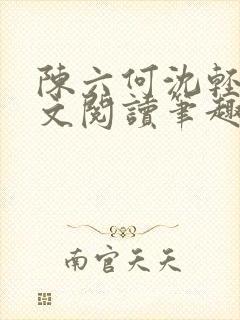 陳六何沈輕
文閱讀筆趣
南官天天